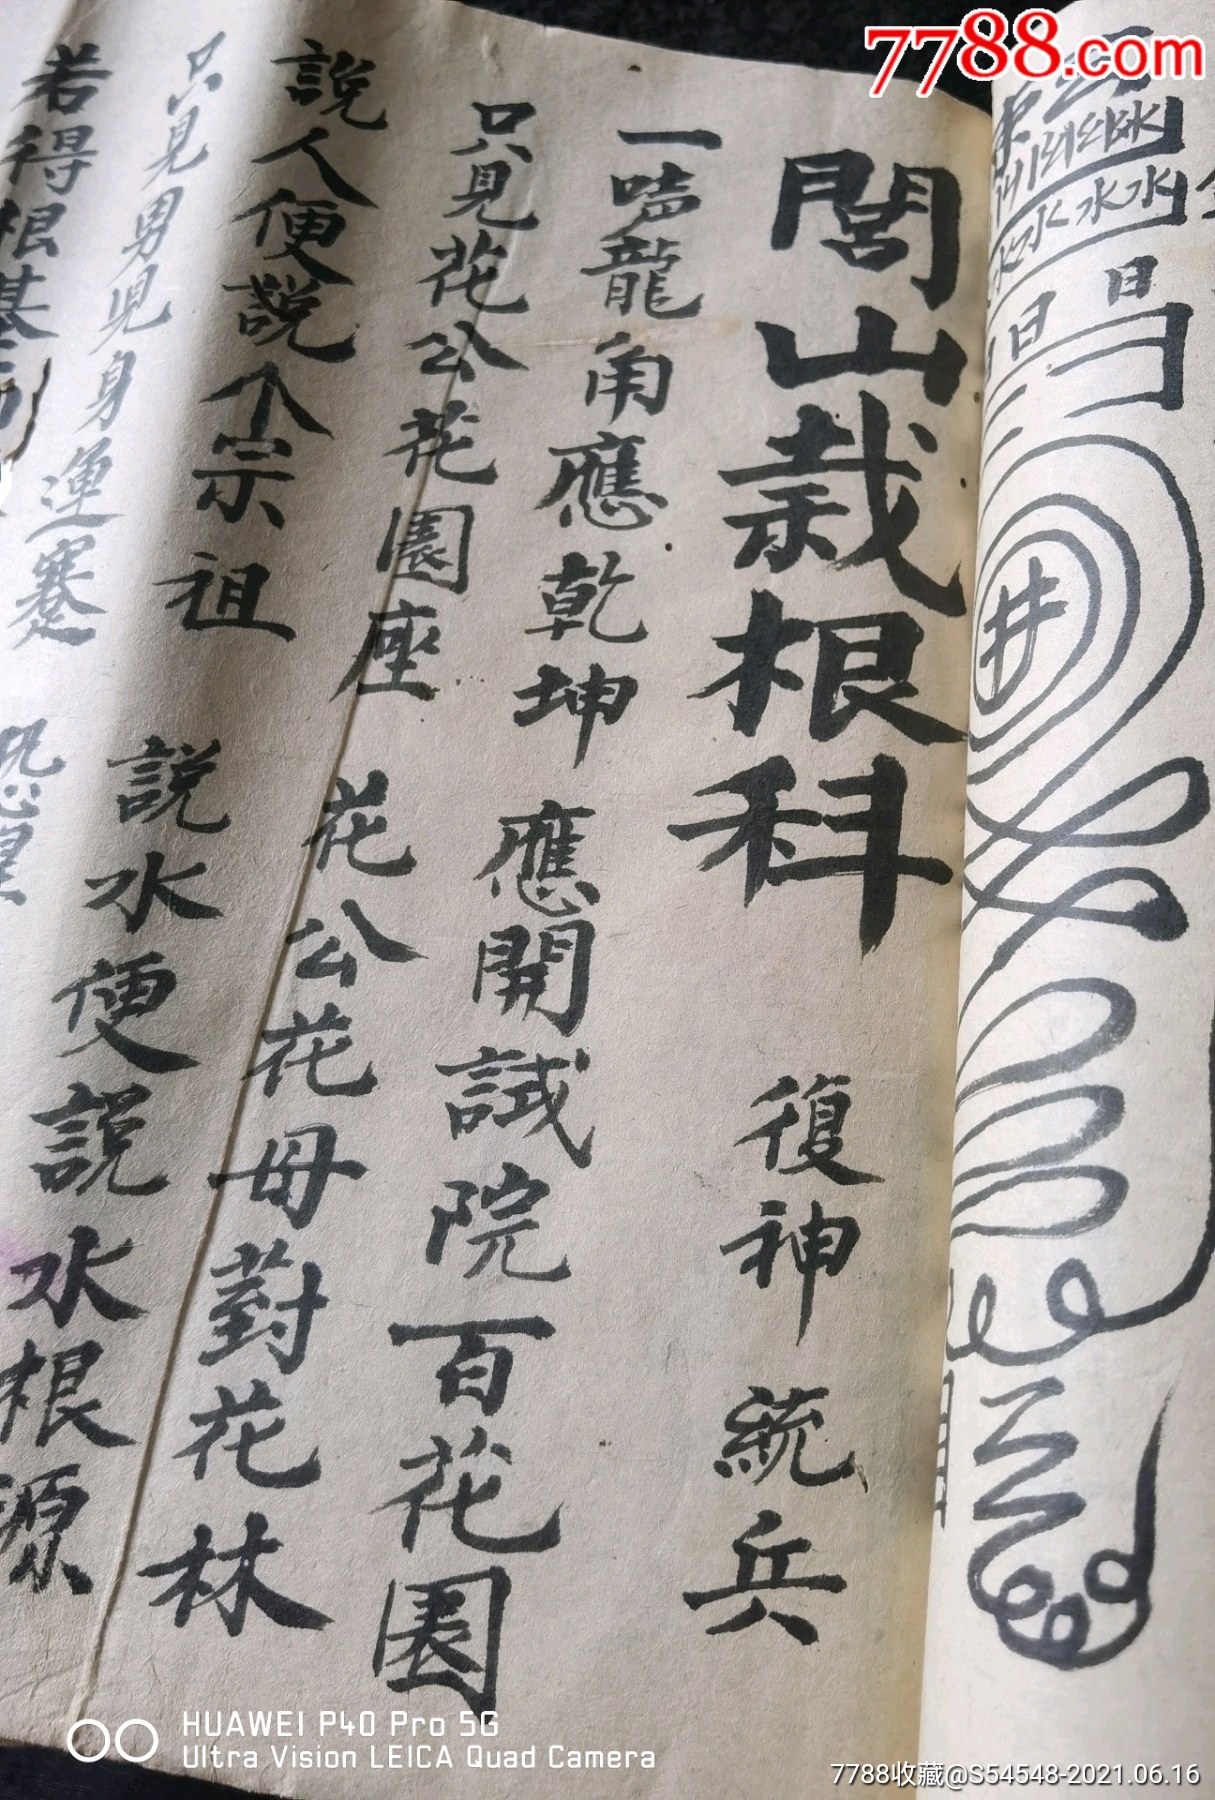 7788.com
閭山栽根科 復神 統兵
一唂龍角應乾坤 應開試院百花園
只見花公花園座 花公花母對花林
說人便說个宗祖 說水便說水根源
只見男兒身運蹇 恐望
若得根基
HUAWEI P40 Pro 5G
Ultra Vision LEICA Quad Camera
7788收藏@S54548-2021.06.16